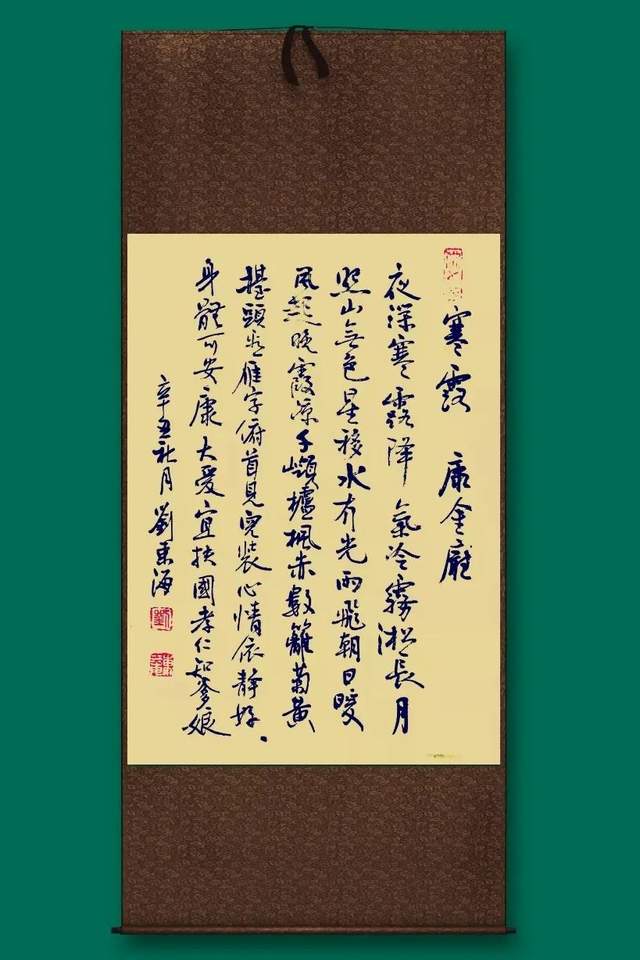 寒露 康金
夜深寒露降氣冷霧淞長月
照山無色星移水有光雨飛朝日暖
風起晚霞涼千嶺櫨楓赤數籬菊黃
擡頭雁字俯首見兒裝心情依靜好
身體可安康大愛宜扶國孝仁知爹娘
辛丑秋月劉東海